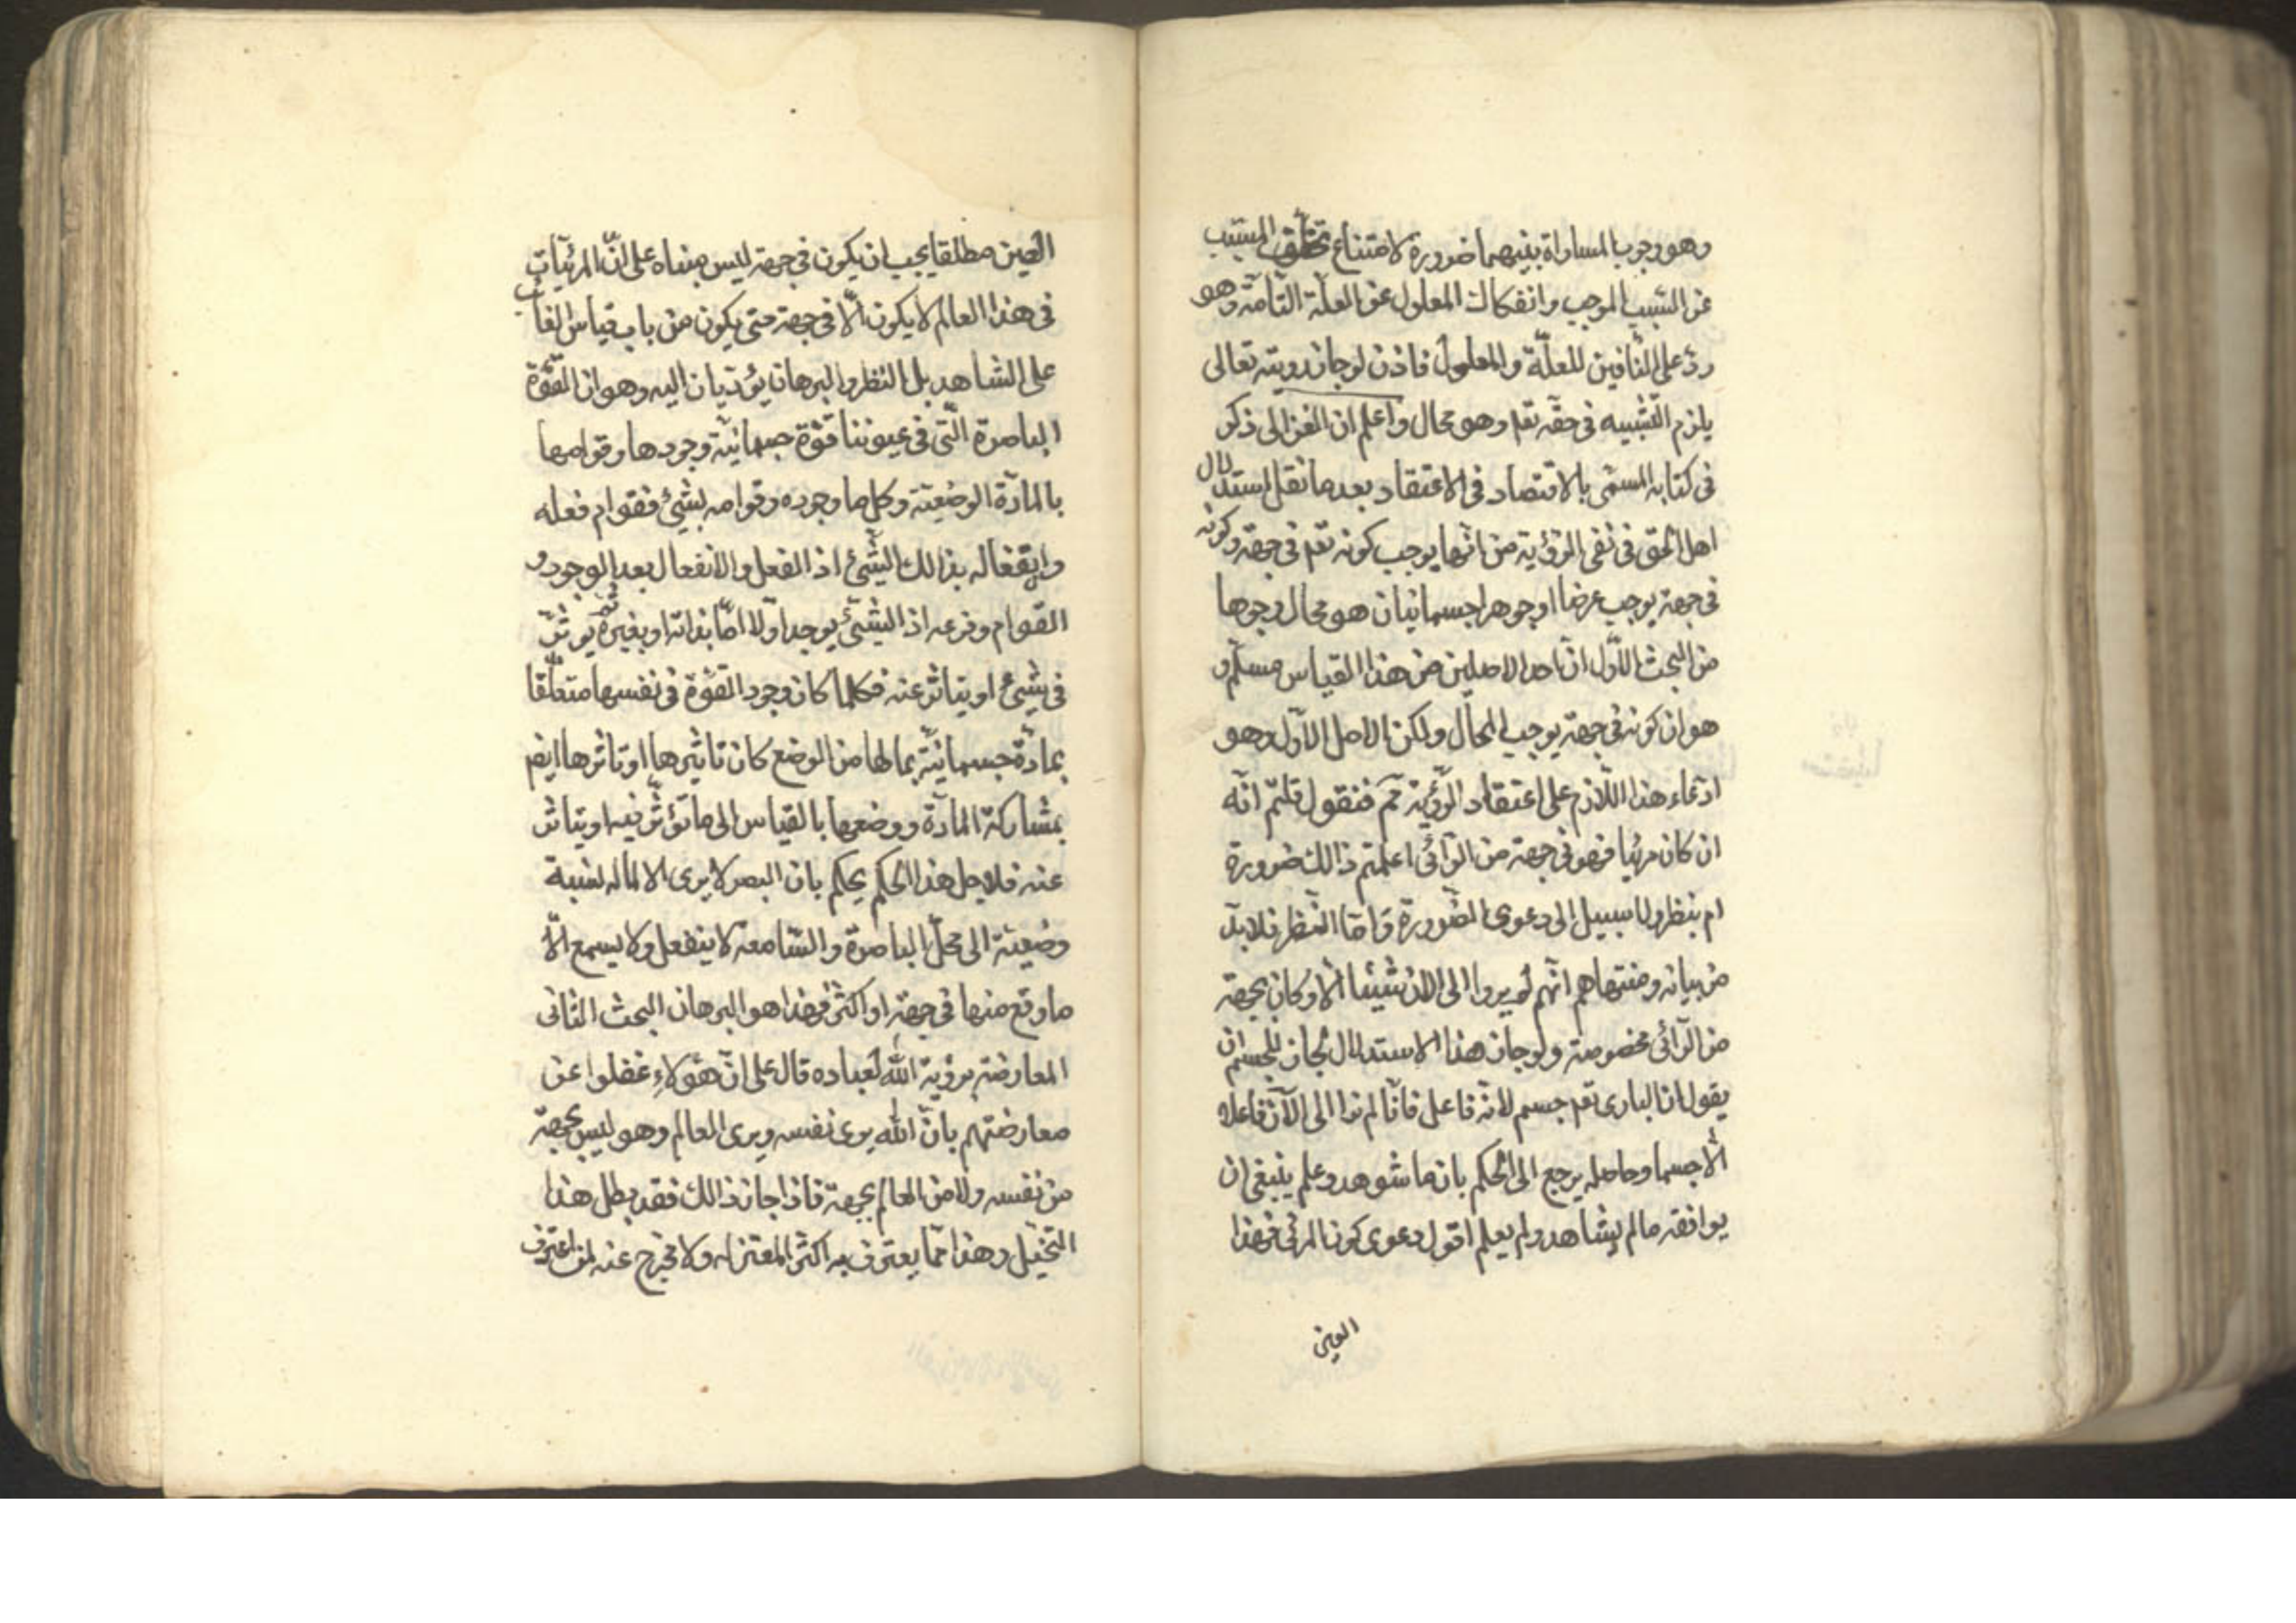 وهو وجوب المساواة بينهما ضرورة لامتناع تخلف المسبب
عن السبب الموجب وانفكاك المعلول عن العلة التامة وهو
رد على النافين للعلة والمعلول فاذن لو جاز رويته تعالى
يلزم التشبيه فى حقه تعم وهو محال واعلم ان الغزالى ذكر
فى كتابه المسمى بالاقتصاد فى الاعتقاد بعد ما نقل استدلال
اهل الحق فى نفى الرؤية من انها يوجب كونه تعم فى جهة وكونه
فى جهة يوجب عرضا او جوهرا جسمانيا هو محال وجوها
من البحث الاول ان احد الاصلين من هذا القياس مسلم و
هو ان كونه فى جهة يوجب المحال ولكن الاصل الاول وهو
ادعاء هذا اللازم على اعتقاد الرؤية مم فنقول قلتم انه
ان كان مرئيا فهو فى جهة من الرآئى اعلمتم ذالك ضرورة
ام بنظر ولا سبيل الى دعوى الضرورة واما النظر فلا بد
من بيانه ومنتهاهم انهم لم يروا الى الان شيئا الا وكان بجهة
من الرآئى مخصوصة ولو جاز هذا الاستدلال لجاز للجسم ان
يقول ان البارى تعم جسم لانه فاعل فانا لم نرا الى الآن فاعلا
الا جسما وحاصله يرجع الى الحكم بان ما شوهد وعلم ينبغى ان
يوافقه مالم يشاهد ولم يعلم اقول دعوى كون المرئى فهذا
العين
العين مطلقا يجب ان يكون فى جهة ليس مبناه على ان المرئيات
فى هذا العالم لا يكون الا فى جهة حتى يكون من باب قياس الغائب
على الشاهد بل النظر والبرهان يؤديان اليه وهو ان القوة
الباصرة التى فى عيوننا قوة جسمانية وجودها وقوامها
بالمادة الوضعية وكل ما وجوده وقوامه بشيئ فقوام فعله
وانفعاله بذالك الشيئ اذ الفعل والانفعال بعد الوجود و
القوام وفرعه اذ الشيئ يوجد اولا اما بذاته او بغيره ثم يوثر
فى شيئ او يتاثر عنه فكلما كان وجود القوة فى نفسها متعلقا
بمادة جسمانية بما لها من الوضع كان تاثيرها او تاثرها ايضم
بمشاركة المادة ووضعها بالقياس الى ما تؤثر فيه او يتاثر
عنه فلاجل هذا الحكم يحكم بان البصر لا يرى الا لما له نسبة
وضعية الى محل الباصرة والسامعة لا ينفعل ولا يسمع الا
ما وقع منها فى جهة او اكثر فهذا هو البرهان البحث الثانى
المعارضة برؤية الله لعباده قال على ان هؤلاء غفلوا عن
معارضتهم بان الله يرى نفسه ويرى العالم وهو ليس بجهة
من نفسه ولا من العالم بجهة فاذا جاز ذالك فقد بطل هذا
التخيل وهذا مما يعترف به اكثر المعتزله ولا مخرج عنه لمن اعترف